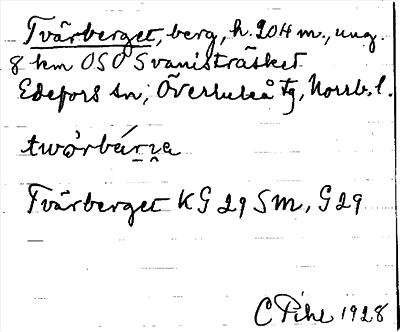 Tvärberget, berg, h. 204 m., ung.
8 km OSO Svanisträsket
Edefors sn, Överluleå tg, Norrb. l.
Tvärberget KG 29 SM, G 29
C Pihl 1928